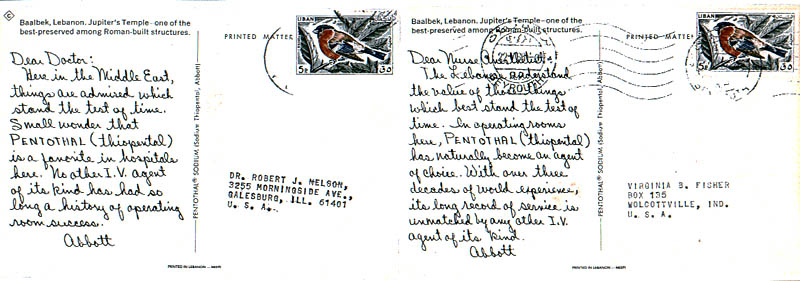 ©
Baalbek, Lebanon. Jupiter's Temple–one of the
best-preserved among Roman-built structures.
PRINTED MATTER
LIBAN
5P
Dear Doctor:
Here in the Middle East,
things are admired which
stand the test of time.
Small wonder that
PENTOTHAL (thiopental)
is a favorite in hospitals
here. No other I.V. agent
of its kind has had so
long a history of operating
room success.
Abbott
PENTOTHAL® SODIUM (Sodium Thiopental, Abbott)
DR. ROBERT J. NELSON,
3255 MORNINGSIDE AVE.,
GALESBURG, ILL. 61401
U. S. A.
PRINTED IN LEBANON
Baalbek, Lebanon. Jupiter's Temple–one of the
best-preserved among Roman-built structures.
PRINTED MATTER
LIBAN
5P
Dear Nurse Anesthetist:
The Lebanese understand
the value of those things
which best stand the test of
time. In operating rooms
here, PENTOTHAL (thiopental)
has naturally become an agent
of choice. With over three
decades of world experience,
its long record of service is
unmatched by any other I.V.
agent of its kind.
Abbott
PENTOTHAL® SODIUM (Sodium Thiopental, Abbott)
VIRGINIA B. FISHER
BOX 135
WOLCOTTVILLE, IND.
U. S. A.
PRINTED IN LEBANON